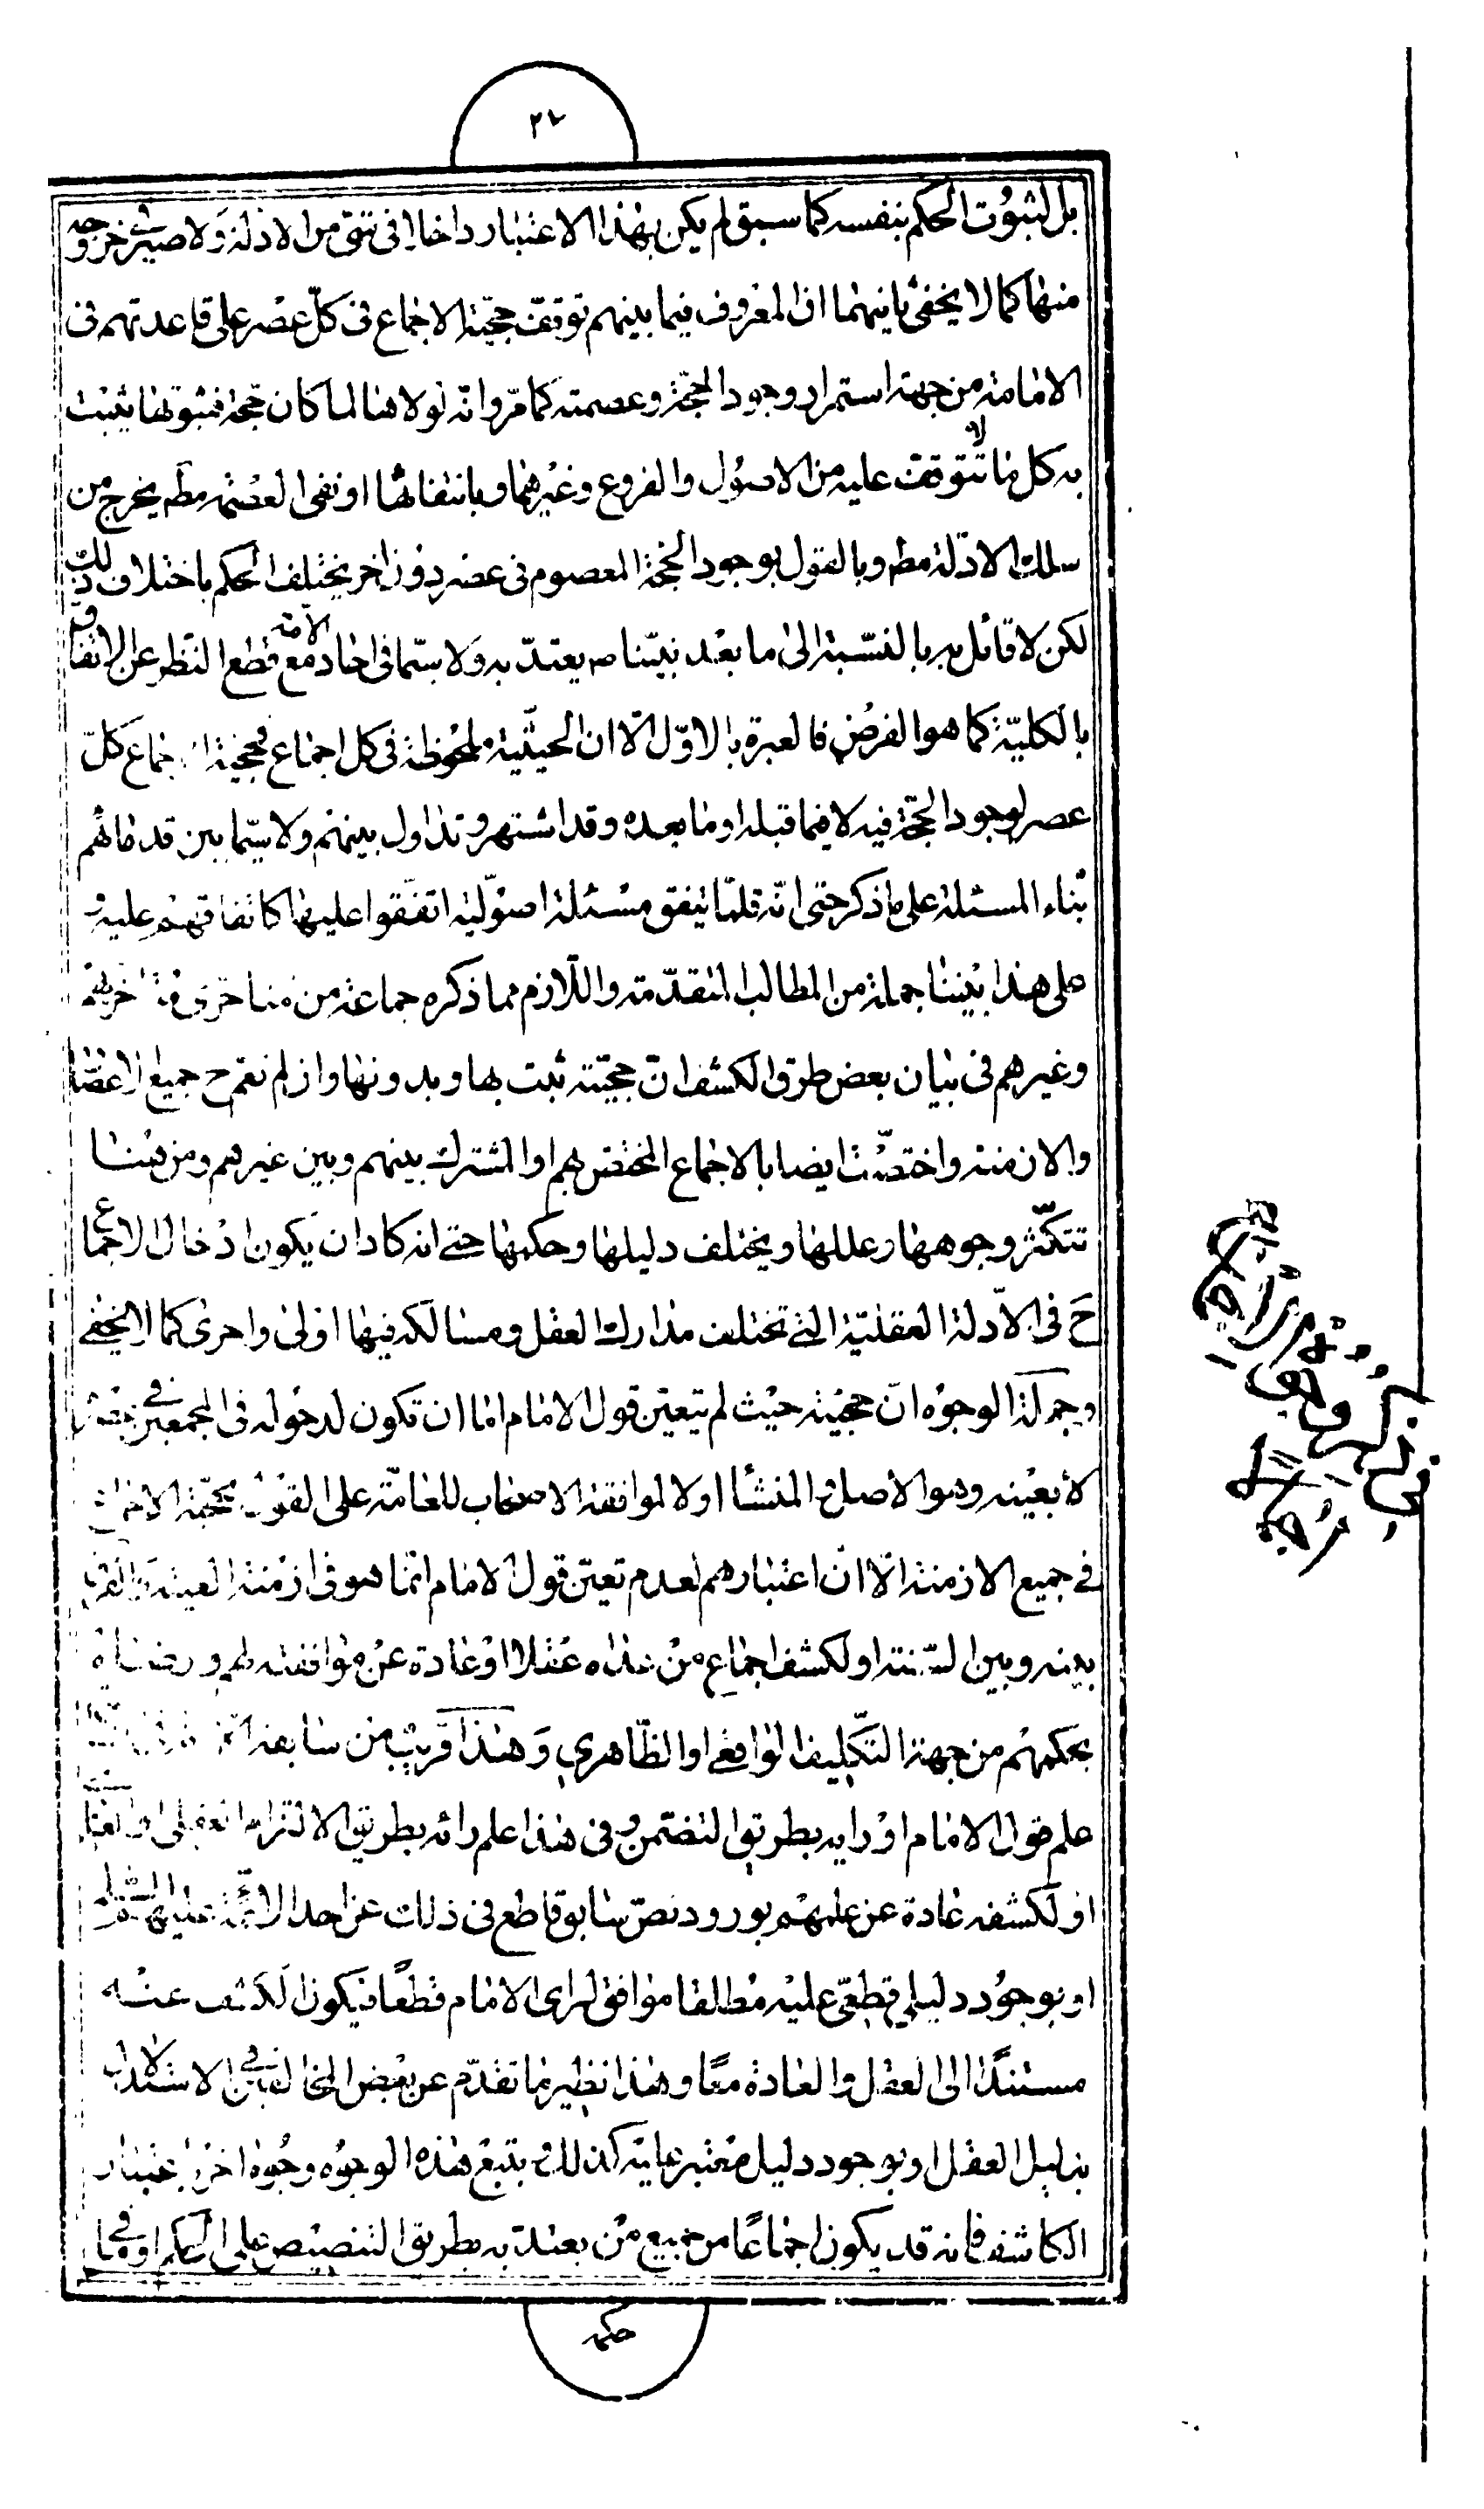 ٢٧
بل لثبوت الحكم بنفسه كما سبق لم يكن بهذا الاعتبار داخلا فى شئ من الادلة ولا ضير فى خروجه
منها كما لا يخفى ثانيهما ان المعروف فيما بينهم توقف حجّية الاجماع فى كلّ عصر على قاعدتهم فى
الامامة من جهة استمرار وجود الحجّة وعصمته كما مرّ وانّه لولاها لما كان حجة فبثبوتها يثبت
به كل ما لا تتوقف عليه من الاصول والفروع وغيرهما وبانتفائها او نفى العصمة مطم يخرج من
سلك الادلّة مطم وبالقول بوجود الحجة المعصوم فى عصر دون اخر يختلف الحكم باختلاف ذلك
لكن لا قائل به بالنسبة الى ما بعد نبيّنا ص يعتدّ به ولا سيّما فى احاد الامة مع قطع النظر عن الاتفاق
بالكليّة كما هو الفرض فالعبرة بالاوّل الّا ان الحيثية ملحوظة فى كل اجماع فحجية اجماع كلّ
عصر لوجود الحجّة فيه لا فيما قبله او ما بعده وقد اشتهر وتداول بينهم ولا سيّما بين قدمائهم
بناء المسئلة على ما ذكر حتى انّه قلّما يتفق مسئلة اصوليّة اتفقوا عليها كاتفاقهم عليه و
على هذا بنينا جملة من المطالب المتقدّمة واللّازم مما ذكره جماعة من متاخرى متاخريهم
وغيرهم فى بيان بعض طرق الكشف ان حجّيته ثبت بها وبدونها وان لم تعم ح جميع الاعصار
والازمنة واختصّت ايضا بالاجماع المختص بهم او المشترك بينهم وبين غيرهم ومن هنا
تتكثّر وجوهها وعللها ويختلف دليلها وحكمها حتى انه كاد ان يكون ادخال الاجماع
ح فى الادلة العقليّة التى تختلف مدارك العقل ومسالكه فيها اولى واحرى كما لا يخفى
وجملة الوجوه انّ حجيته حيث لم يتعين قول الامام اما ان تكون لدخوله فى المجمعين
لا بعينه وهو الاصل والمنشأ اولا لموافقة الاصحاب للعامّة على القول بحجّية الاجماع
فى جميع الازمنة الّا انّ اعتبارهم لعدم تعيّن قول الامام انّما هو فى ازمنة الغيبة والفرق
بينه وبين السّنة او لكشف اجماع من عداه عقلا او عادة عن موافقته لهم ورضاه
بحكمهم من جهة التّكليف الواقعى او الظّاهرى وهذا قريب من سابقه
علم قول الامام او رايه بطريق التضمن وفى هذا علم رايه بطريق الالتزام العقلى او
او لكشفه عادة عن علمهم بورود نصّ سابق قاطع فى ذلك عن احد الائمّة عليهم السّلام
او بوجود دليل قطعىّ عليه مطلقا موافق لراى الامام قطعًا فيكون الكشف عنه
مستندًا الى العقل والعادة معًا وهذا نظير ما تقدّم عن بعض المخالفين فى الاستدلال
بدليل العقل او بوجود دليل معتبر عليه كذلك ويتبع هذه الوجوه وجوه اخر باعتبار
الكاشف فانه قد يكون اجماعًا من جميع من يعتدّ به بطريق التنصيص على الحكم او فى ما
حكمه